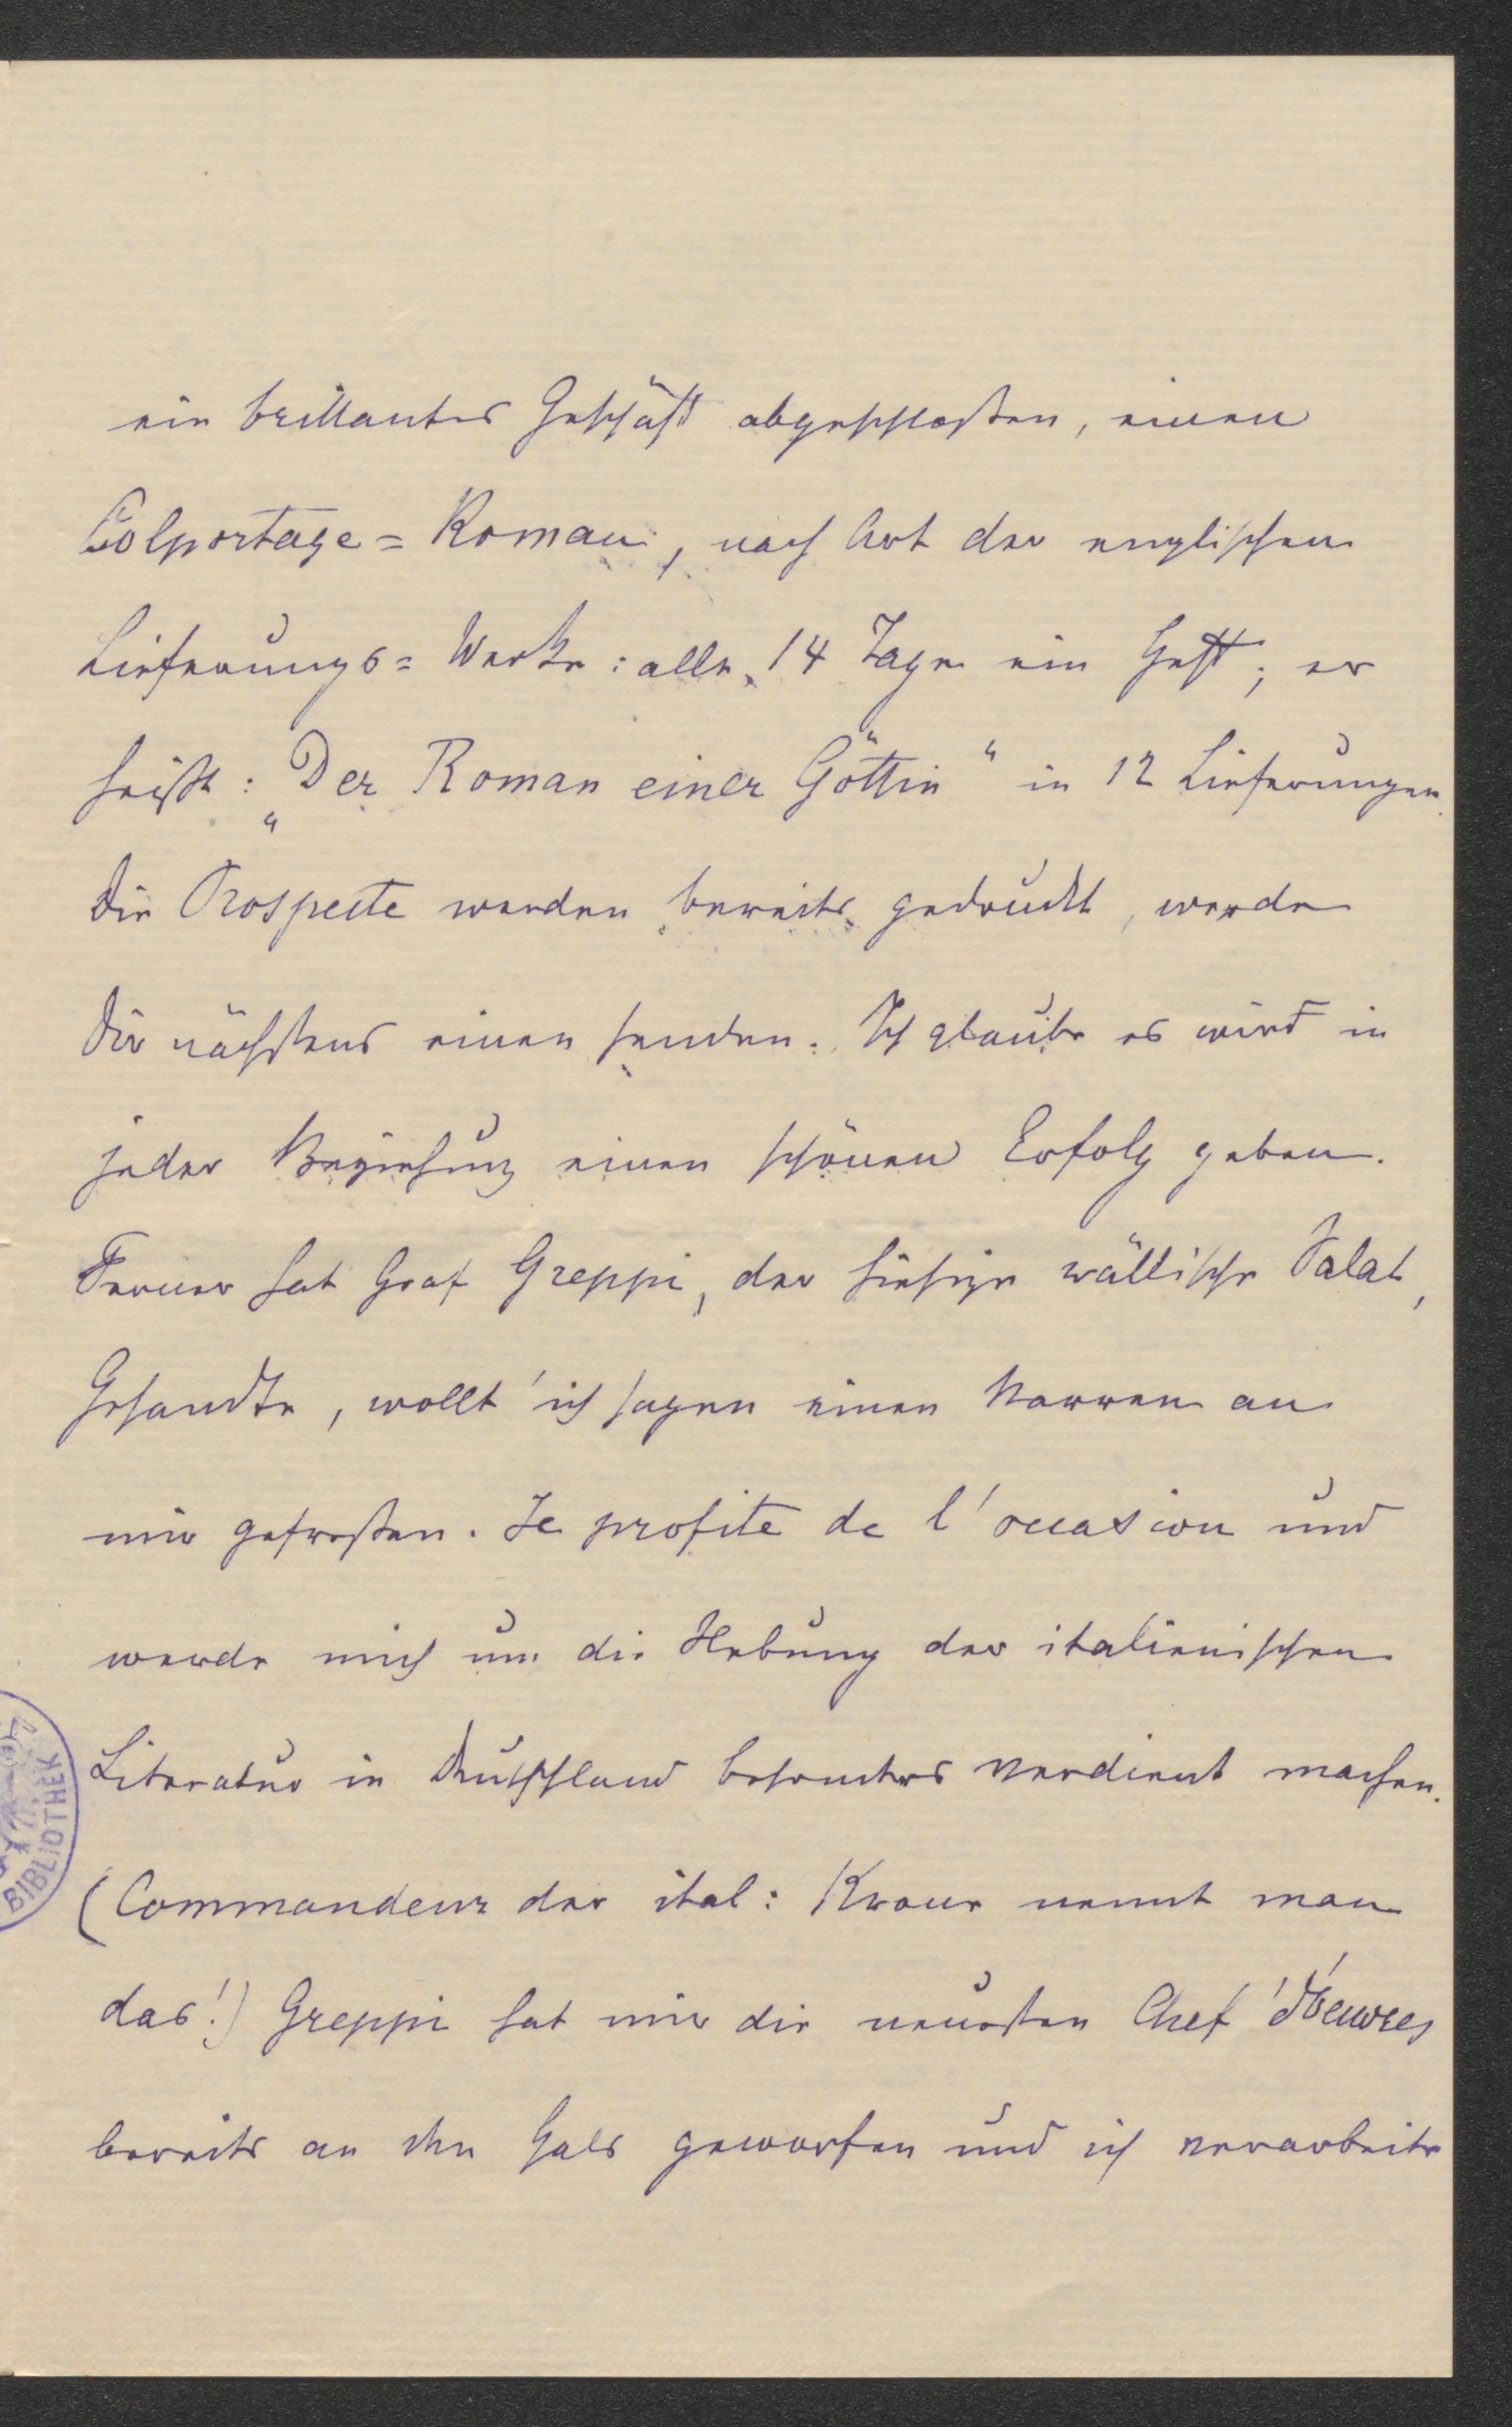 ein brillantes Geschäft abgeschloßen, einen
Colportage=Roman, nach Art der englischen
Lieferungs=Werke: alle 14 Tage ein Heft; er
heißt: „Der Roman einer Göttin“ in 12 Lieferungen.
Die Prospecte werden bereits gedruckt, werde
Dir nächstens einen senden. Ich glaube es wird in
jeder Beziehung einen schönen Erfolg geben.
Ferner hat Graf Greppi, der hiesige wällische Salat,
Gesandte, wollt' ich sagen einen Narren an
mir gefreßen. Je profite de l'occasion und
werde mich um die Hebung der italienischen
Literatur in Deutschland besonders verdient machen.
(Commandeur der ital: Krone nennt man
das!) Greppi hat mir die neuesten Chef d'œuvres
bereits an den Hals geworfen und ich verarbeite
BIBLIOTHEK